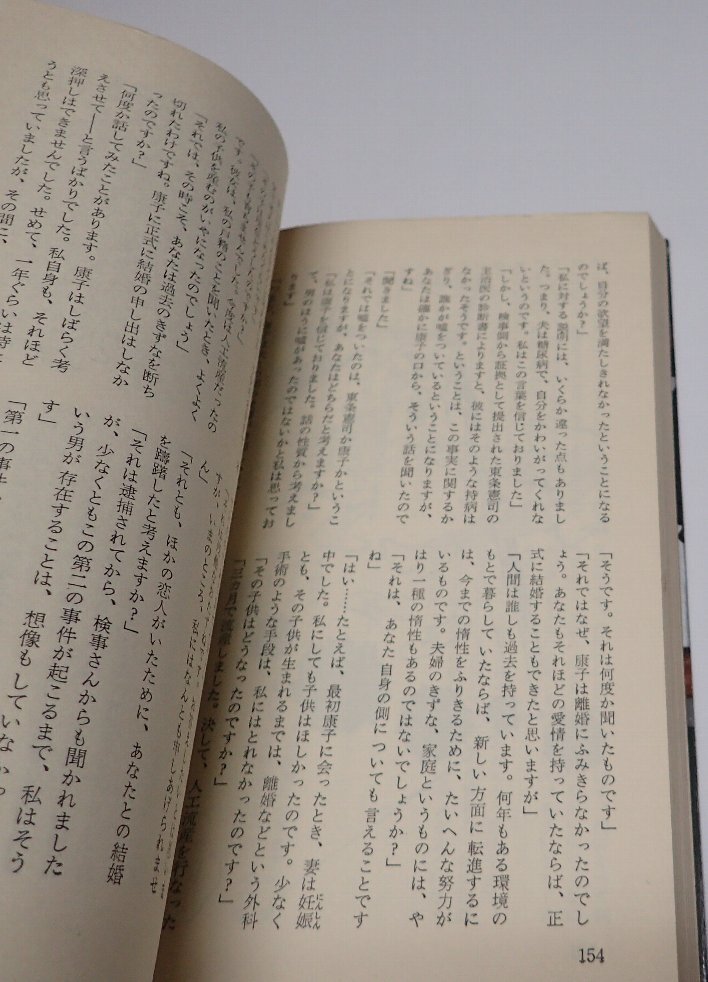 ば、自分の欲望を満たしきれなかったということになる
のでしょうか？」
「私に対する説明には、いくらか違った点もありまし
た。つまり、夫は糖尿病で、自分をかわいがってくれな
いというのです。私はこの言葉を信じておりました」
「しかし、検事側から証拠として提出された東条憲司の
主治医の診断書によりますと、彼にはそのような持病は
なかったそうです。ということは、この事実に関するか
ぎり、誰かが嘘をついているということになりますが、
あなたは確かに康子の口から、そういう話を聞いたので
すね」
「聞きました」
「それでは嘘をついたのは、東条憲司か康子かというこ
とになりますが、あなたはどちらだと考えますか？」
「私は康子を信じておりました。話の性質から考えまし
て、男のほうに嘘があったのではないかと私は思ってお
ります」
「そうです。それは何度か聞いたものです」
「それではなぜ、康子は離婚にふみきらなかったのでし
ょう。あなたもそれほどの愛情を持っていたならば、正
式に結婚することもできたと思いますが」
「人間は誰しも過去を持っています。何年もある環境の
もとで暮らしていたならば、新しい方面に転進するに
は、今までの惰性をふりきるために、たいへんな努力が
いるものです。夫婦のきずな、家庭というものには、や
はり一種の惰性もあるのではないでしょうか？」
「それは、あなた自身の側についても言えることです
ね」
「はい……たとえば、最初康子に会ったとき、妻は妊娠
中でした。私にしても子供はほしかったのです。少なく
とも、その子供が生まれるまでは、離婚などという外科
手術のような手段は、私にはとれなかったのです」
「その子供はどうなったのですか？」
「三か月で流産しました。決して、人工流産を行なった
私の子供を産むのがいやになったのでしょう」
「それでは、その時こそ、あなたは過去のきずなを断ち
切れたわけですね。康子に正式に結婚の申し出はしなか
ったのですか？」
「何度か話してみたことがあります。康子はしばらく考
えさせて――と言うばかりでした。私自身も、それほど
深押しはできませんでした。せめて、一年ぐらいは待
うとも思っていましたが、その間に、
すが、いまのところ、私にはなんとも申しあげられませ
ん」
「それとも、ほかの恋人がいたために、あなたとの結婚
を躊躇したと考えますか？」
「それは逮捕されてから、検事さんからも聞かれました
が、少なくともこの第二の事件が起こるまで、私はそう
いう男が存在することは、想像もしていなか
す」
「第一の事件、
154